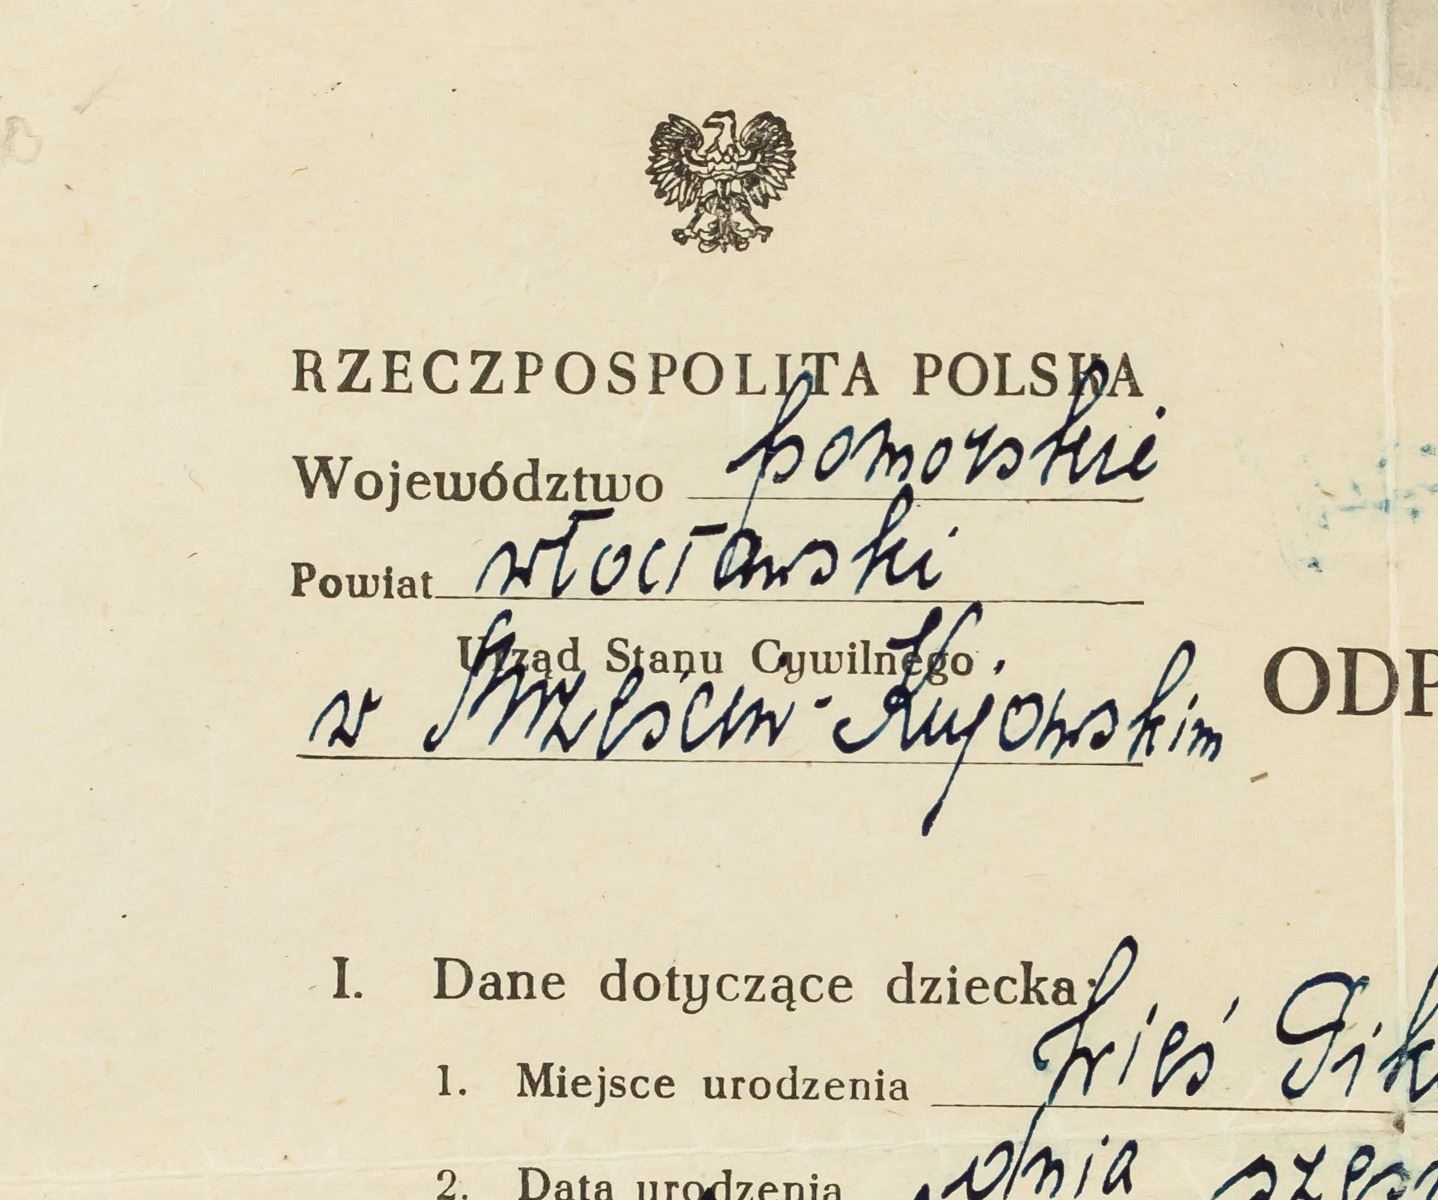 RZECZPOSPOLITA POLSKA
Województwo pomorskie
Powiat włocławski
Urząd Stanu Cywilnego
w Brześciu-Kujawskim
ODP
I. Dane dotyczące dziecka:
1. Miejsce urodzenia wieś Pik
2. Data urodzenia dnia